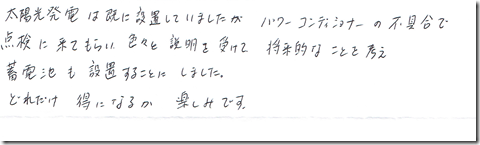 太陽光発電は既に設置していましたが パワーコンディショナーの不具合で
点検に来てもらい 色々と説明を受けて 将来的なことを考え
蓄電池も設置することにしました。
どれだけ 得になるか 楽しみです。